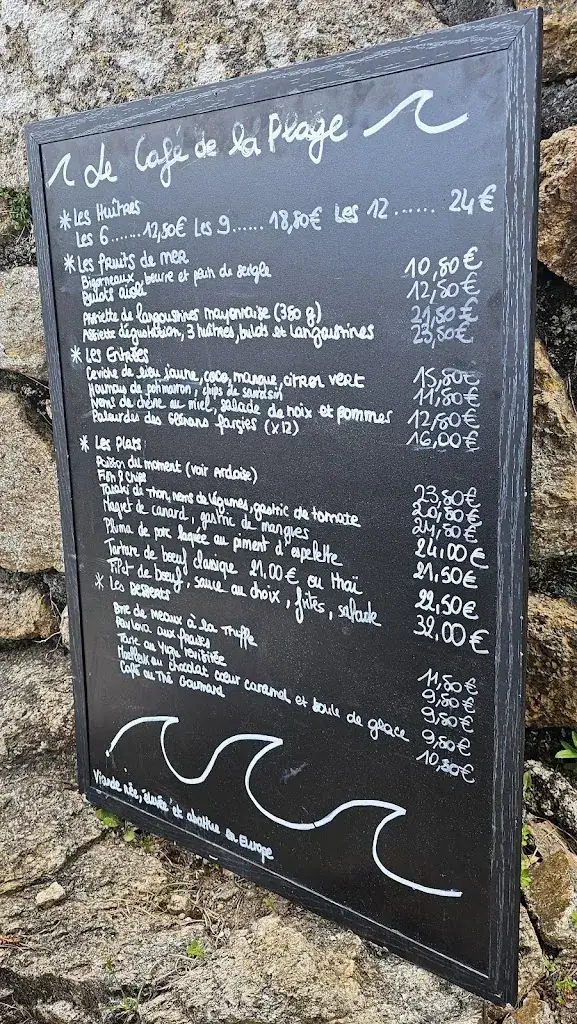 Le Café de la Plage
* Les Huîtres
Les 6....... 12,50€ Les 9..... 18,80€ Les 12...... 24€
* Les fruits de mer
Bigorneaux, beurre et pain de seigle 10,80€
Bulots aïoli 12,50€
Assiette de langoustines mayonnaise (380 g) 21,50€
Assiette dégustation, 3 huîtres, bulots et langoustines 23,50€
* Les Entrées
Ceviche de lieu jaune, coco, mangue, citron vert 15,80€
Houmous de potimarron, chips de sarrasin 11,80€
Nems de chèvre au miel, salade de noix et pommes 12,80€
Palourdes des Glénans farcies (x12) 16,00€
* Les Plats
Poisson du moment (voir Ardoise)
Fish & chips 23,50€
Tataki de Thon, nems de légumes, gastric de tomate 20,80€
Magret de canard, gastric de mangues 24,80€
Pluma de porc laquée au piment d'espelette 24,00€
Tartare de bœuf classique 21,00€ ou thaï 21,50€
22,50€
Filet de bœuf, sauce au choix, frites, salade 32,00€
* Les Desserts
Brie de Meaux à la Truffe 11,80€
Pavlova aux fraises 9,80€
Tarte au revisitée 9,80€
Moelleux au chocolat cœur caramel et boule de glace 9,50€
Café ou Thé Gourmand 10,80€
Viande née, élevée et abattue en Europe